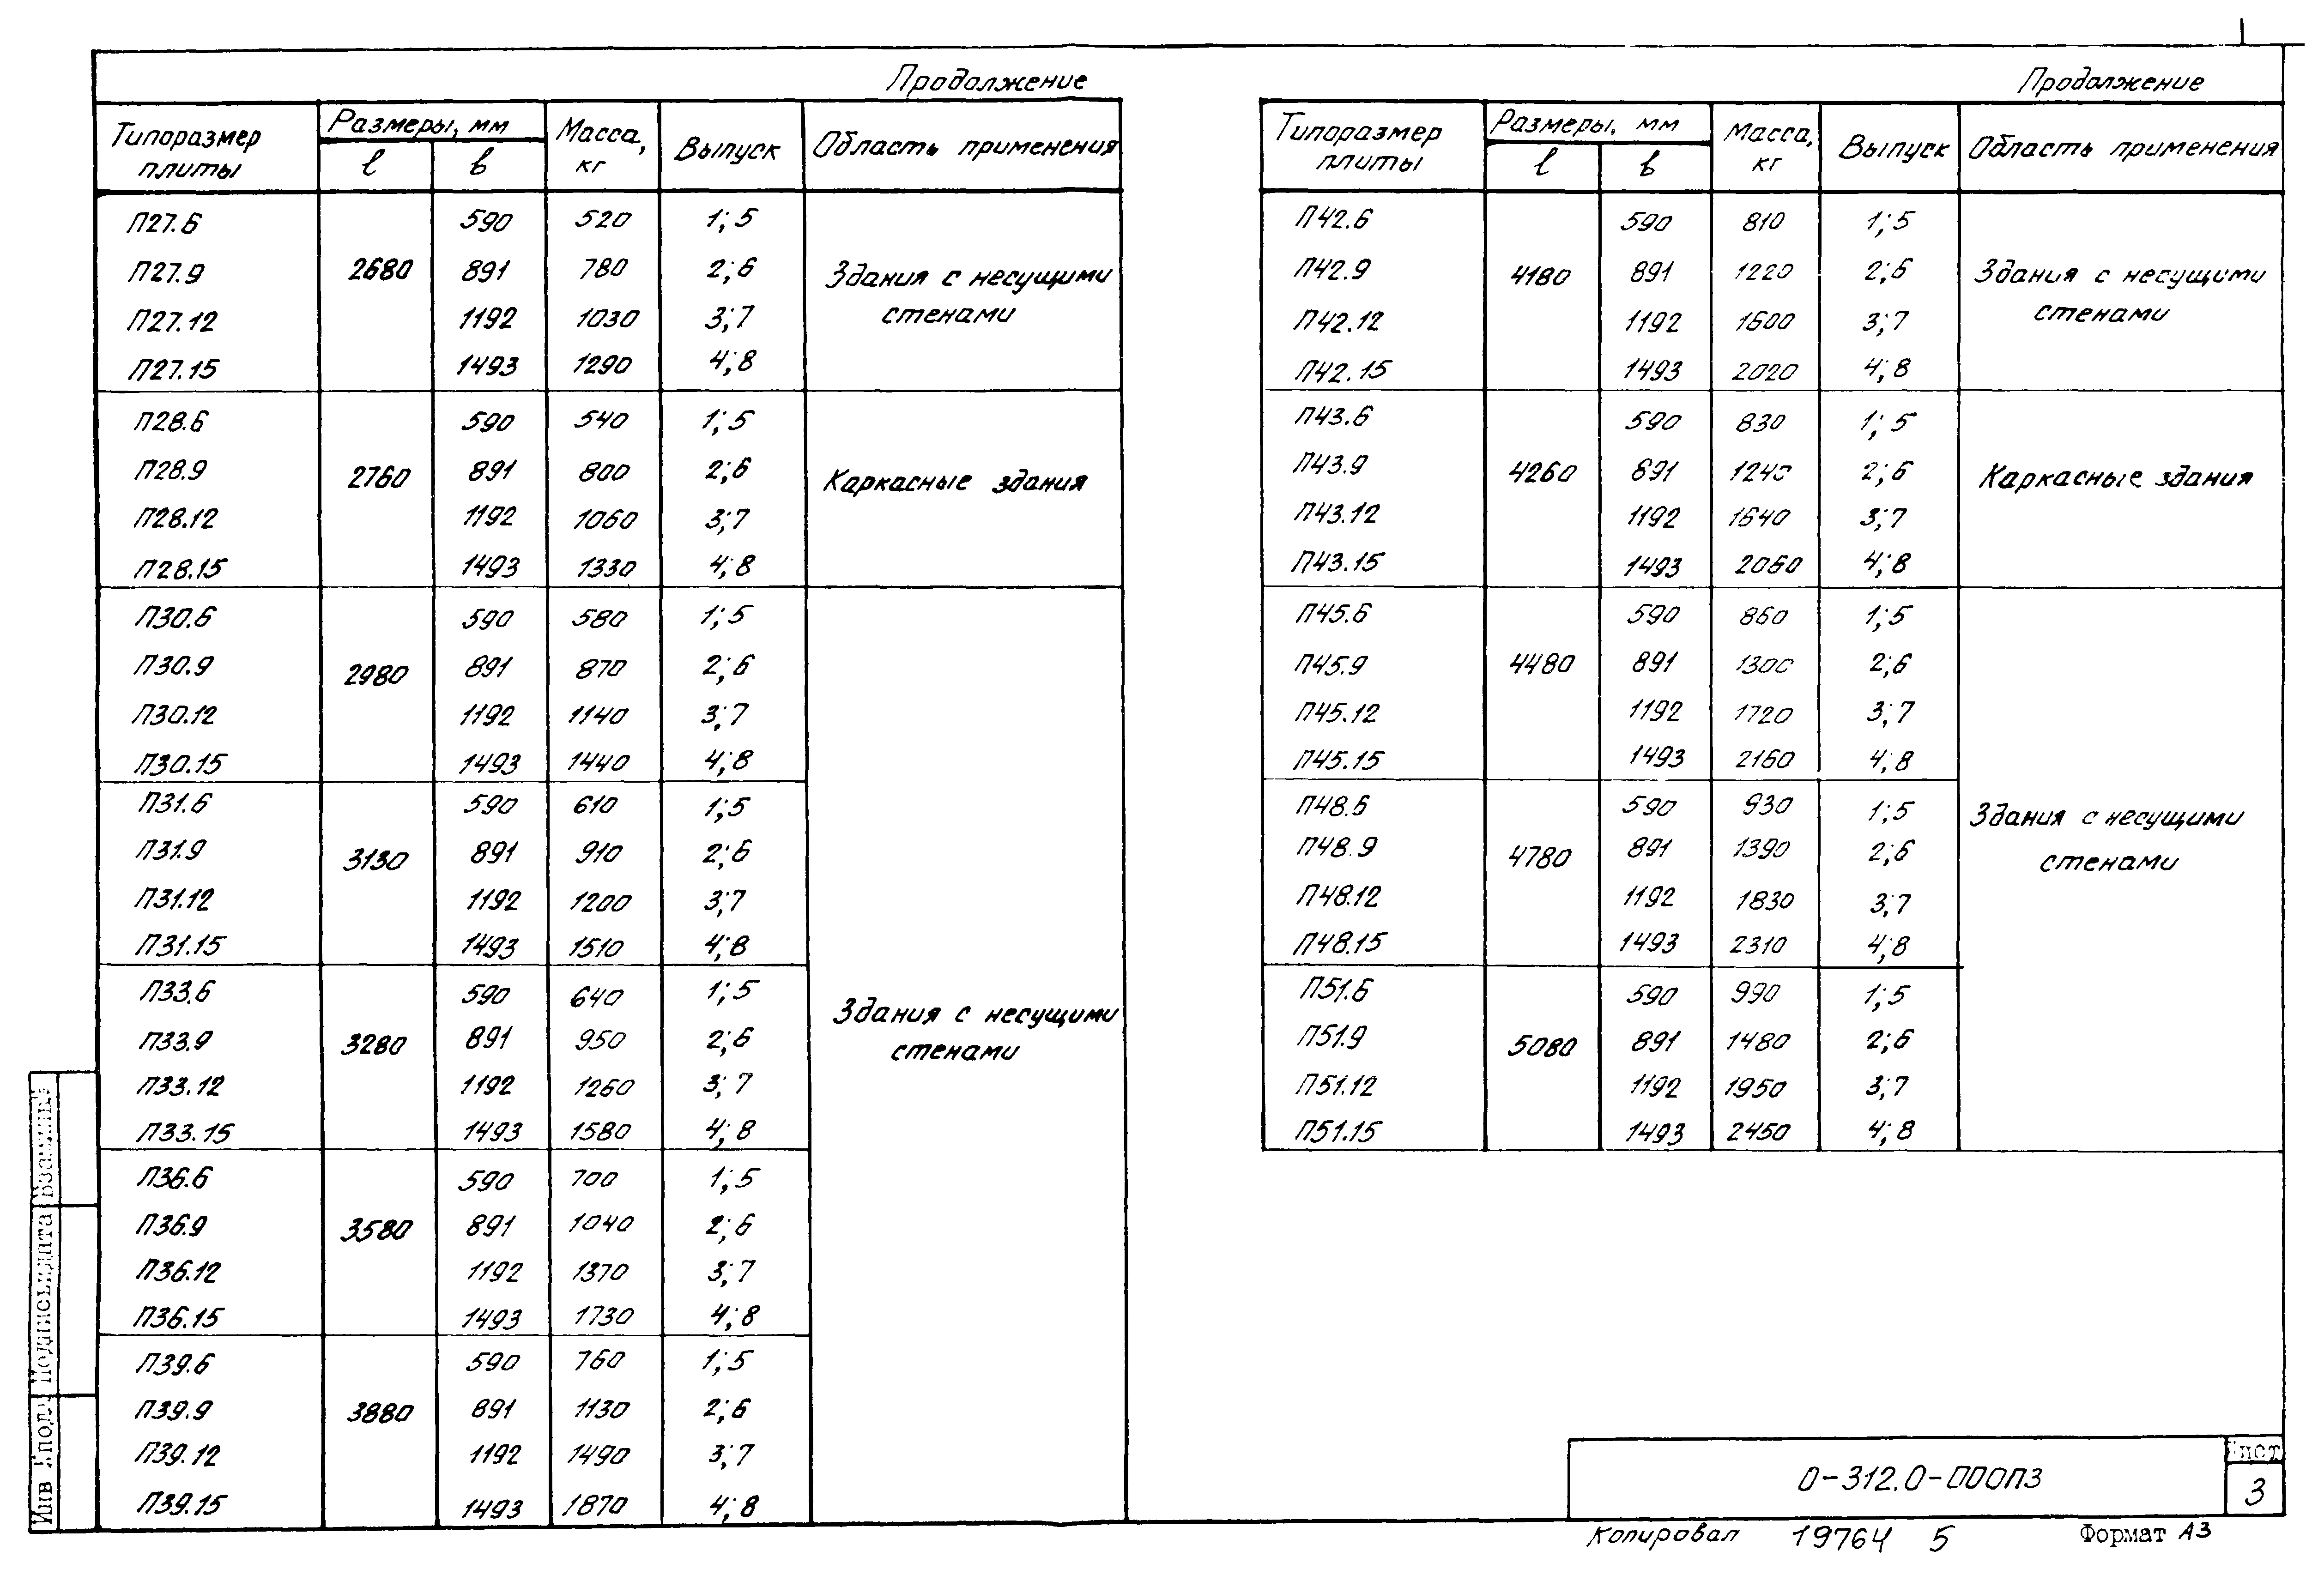 Продолжение
Типоразмер плиты | Размеры, мм | Масса, кг | Выпуск | Область применения
ℓ | b
П27.6 | 2680 | 590 | 520 | 1; 5 | Здания с несущими стенами
П27.9 | 891 | 780 | 2; 6
П27.12 | 1192 | 1030 | 3; 7
П27.15 | 1493 | 1290 | 4; 8
П28.6 | 2760 | 590 | 540 | 1; 5 | Каркасные здания
П28.9 | 891 | 800 | 2; 6
П28.12 | 1192 | 1060 | 3; 7
П28.15 | 1493 | 1330 | 4; 8
П30.6 | 2980 | 590 | 580 | 1; 5 | Здания с несущими стенами
П30.9 | 891 | 870 | 2; 6
П30.12 | 1192 | 1140 | 3; 7
П30.15 | 1493 | 1440 | 4; 8
П31.6 | 3130 | 590 | 610 | 1; 5
П31.9 | 891 | 910 | 2; 6
П31.12 | 1192 | 1200 | 3; 7
П31.15 | 1493 | 1510 | 4; 8
П33.6 | 3280 | 590 | 640 | 1; 5
П33.9 | 891 | 950 | 2; 6
П33.12 | 1192 | 1260 | 3; 7
П33.15 | 1493 | 1580 | 4; 8
П36.6 | 3580 | 590 | 700 | 1; 5
П36.9 | 891 | 1040 | 2; 6
П36.12 | 1192 | 1370 | 3; 7
П36.15 | 1493 | 1730 | 4; 8
П39.6 | 3880 | 590 | 760 | 1; 5
П39.9 | 891 | 1130 | 2; 6
П39.12 | 1192 | 1490 | 3; 7
П39.15 | 1493 | 1870 | 4; 8
Продолжение
Типоразмер плиты | Размеры, мм | Масса, кг | Выпуск | Область применения
ℓ | b
П42.6 | 4180 | 590 | 810 | 1; 5 | Здания с несущими стенами
П42.9 | 891 | 1220 | 2; 6
П42.12 | 1192 | 1600 | 3; 7
П42.15 | 1493 | 2020 | 4; 8
П43.6 | 4260 | 590 | 830 | 1; 5 | Каркасные здания
П43.9 | 891 | 1240 | 2; 6
П43.12 | 1192 | 1640 | 3; 7
П43.15 | 1493 | 2060 | 4; 8
П45.6 | 4480 | 590 | 860 | 1; 5 | Здания с несущими стенами
П45.9 | 891 | 1300 | 2; 6
П45.12 | 1192 | 1720 | 3; 7
П45.15 | 1493 | 2160 | 4; 8
П48.6 | 4780 | 590 | 930 | 1; 5
П48.9 | 891 | 1390 | 2; 6
П48.12 | 1192 | 1830 | 3; 7
П48.15 | 1493 | 2310 | 4; 8
П51.6 | 5080 | 590 | 990 | 1; 5
П51.9 | 891 | 1480 | 2; 6
П51.12 | 1192 | 1950 | 3; 7
П51.15 | 1493 | 2450 | 4; 8
0-312.0-000ПЗ
Лист
3
Копировал 19764 5 Формат А3
Инв №подл
Подпись и дата